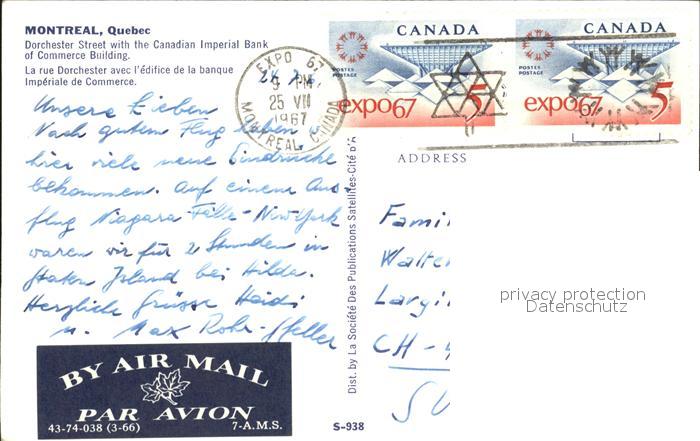 MONTREAL, Quebec
Dorchester Street with the Canadian Imperial Bank
of Commerce Building.
La rue Dorchester avec l'édifice de la banque
Impériale de Commerce.
EXPO 67
9 PM
25 VII
1967
MONTREAL CANADA
CANADA
POSTES
POSTAGE
expo67 5
CANADA
POSTES
POSTAGE
expo67 5
Unsere Lieben
Nach gutem Flug haben w
hier viele neue Eindrücke
bekommen. Auf einem Aus-
flug Niagara-Fälle-New York
waren wir für 2 Stunden in
Staten Island bei Hilda.
Herzliche Grüsse Heidi
u. Max Rohr-Pfeller
Dist. by La Société Des Publications Satellites-Cité d'A
ADDRESS
Fami
Walte
Largi
CH-4
privacy protection
Datenschutz
BY AIR MAIL
PAR AVION
43-74-038 (3-66) 7-A.M.S.
S-938